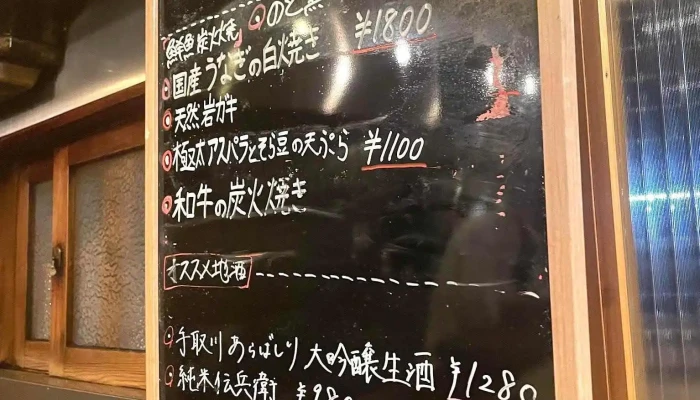 鮮魚炭火焼 のど黒 ¥1800
国産うなぎの白焼き
天然岩ガキ
極太アスパラとそら豆の天ぷら ¥1100
和牛の炭火焼き
オススメ地酒
手取川 あらばしり 大吟醸生酒 ¥1280
純米伝兵衛 ¥980